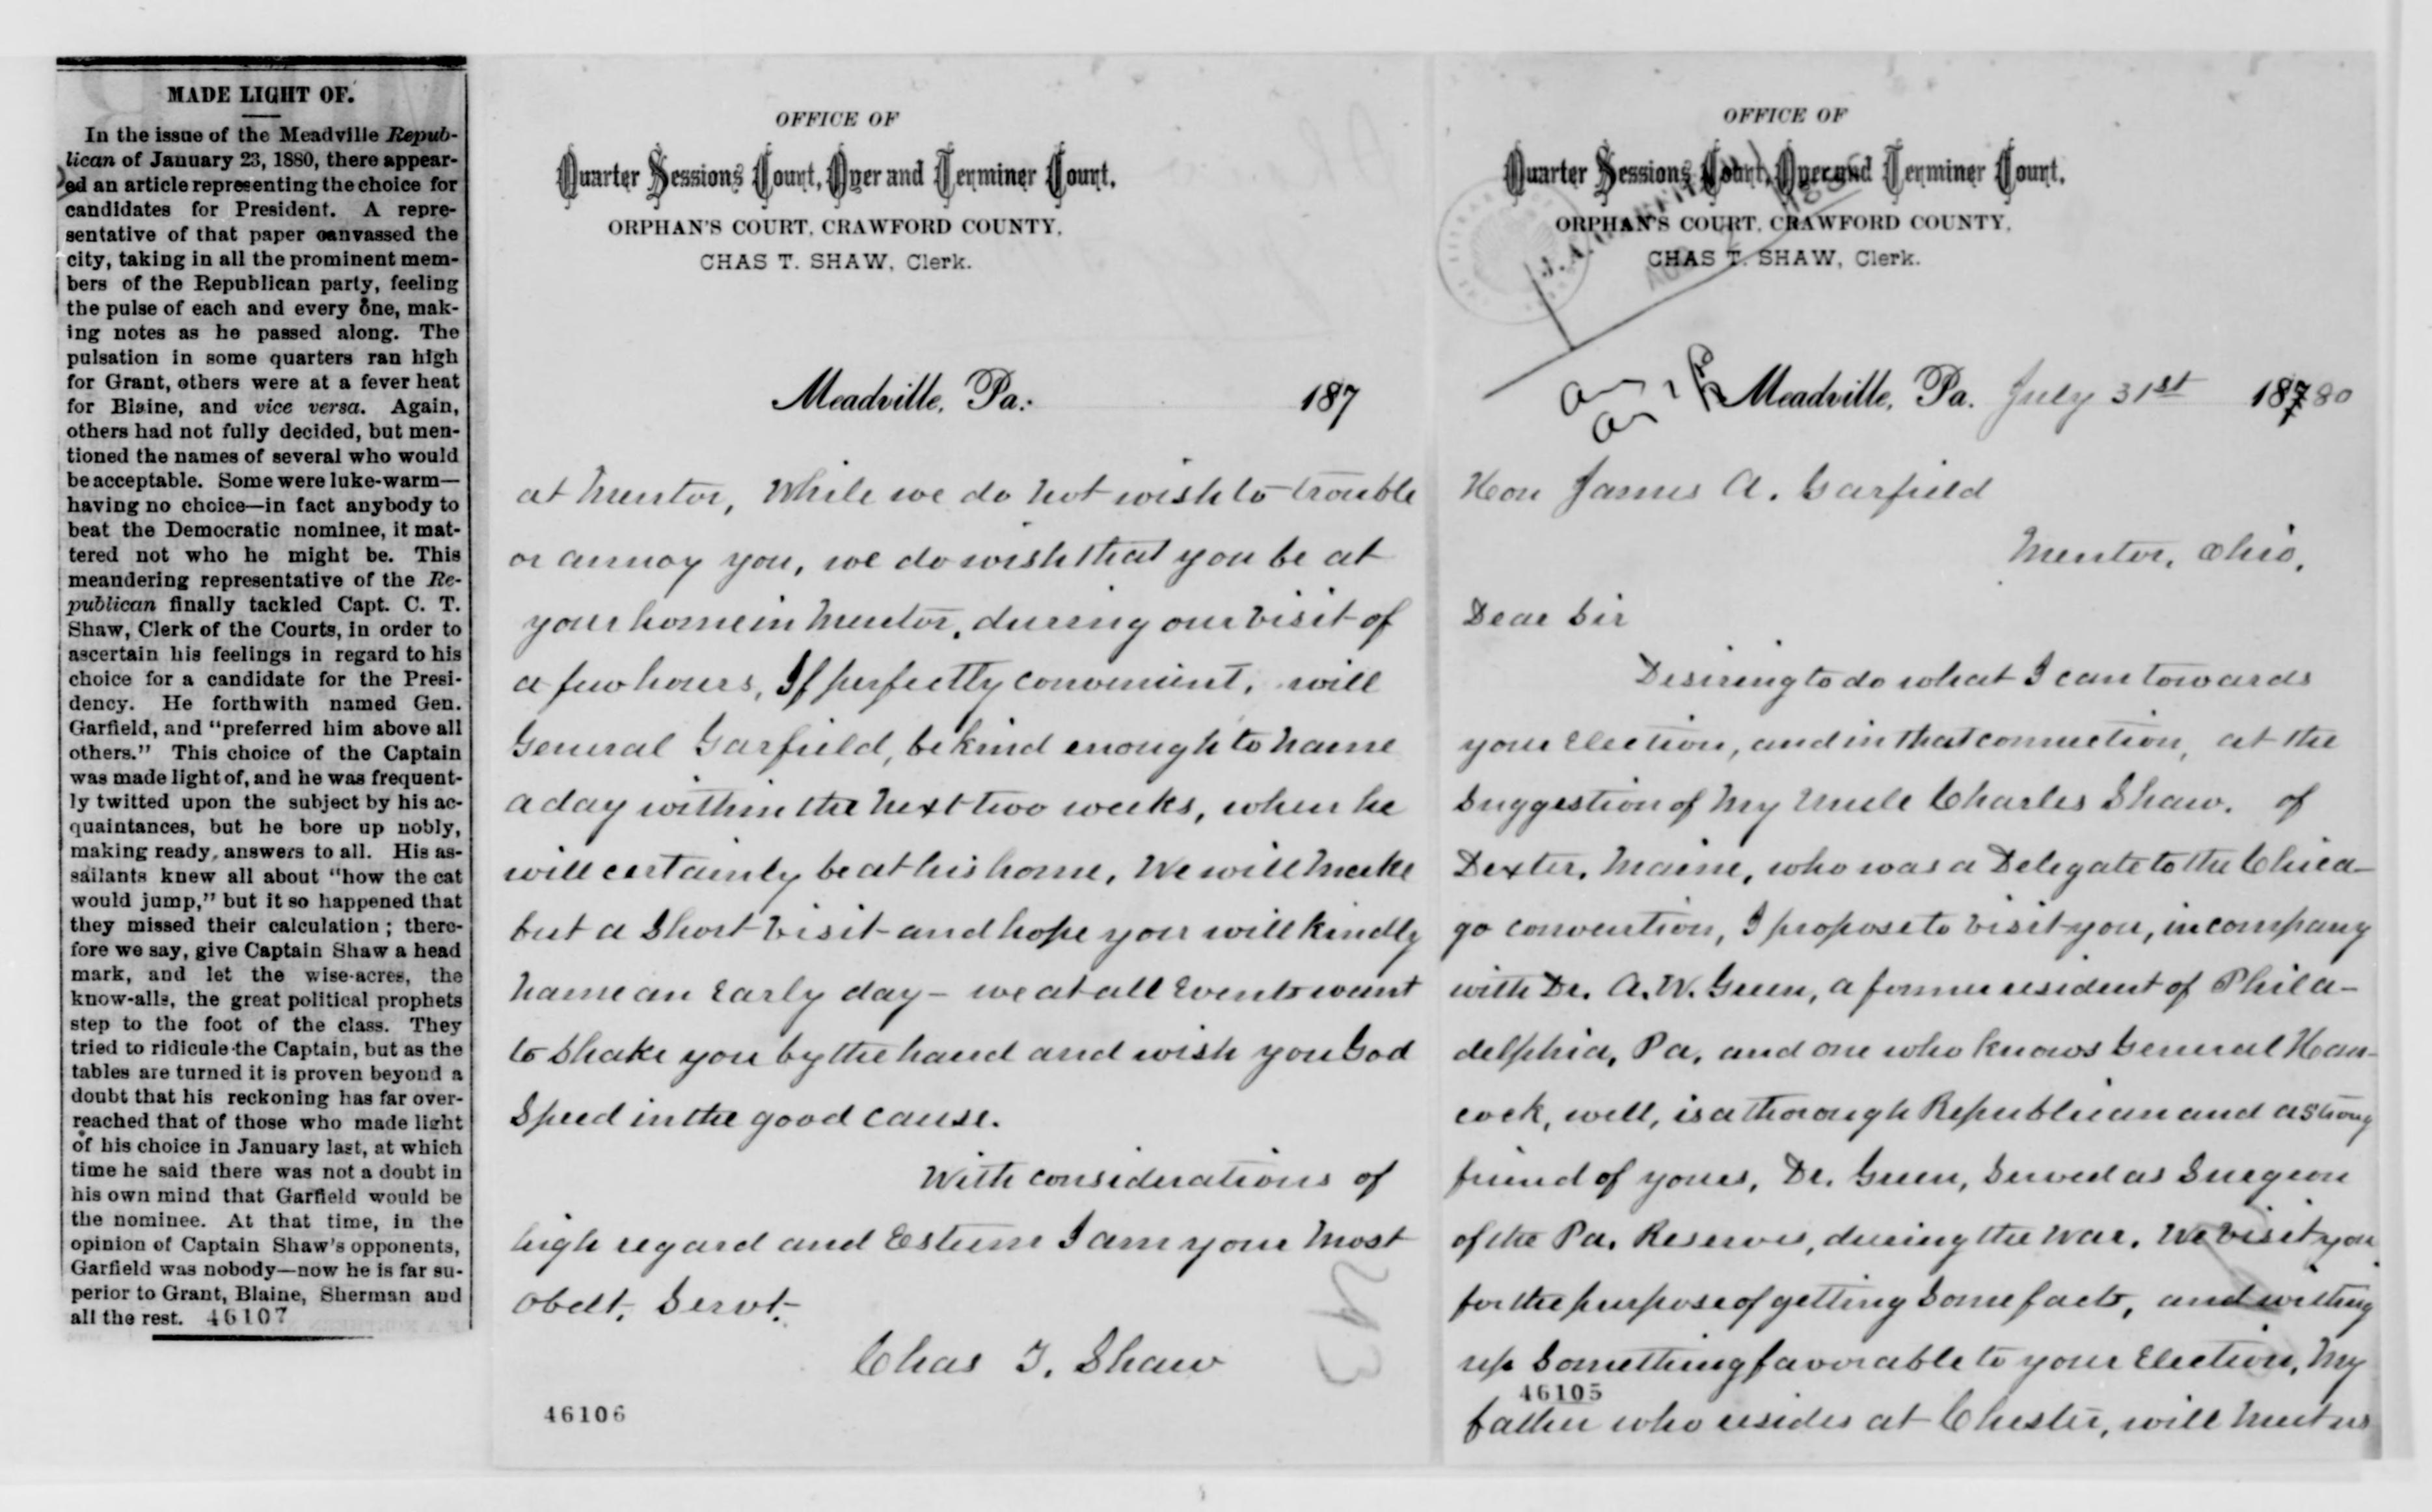 MADE LIGHT OF.
In the issue of the Meadville Repub-
lican of January 23, 1880, there appear-
ed an article representing the choice for
candidates for President. A repre-
sentative of that paper canvassed the
city, taking in all the prominent mem-
bers of the Republican party, feeling
the pulse of each and every one, mak-
ing notes as he passed along. The
pulsation in some quarters ran high
for Grant, others were at a fever heat
for Blaine, and vice versa. Again,
others had not fully decided, but men-
tioned the names of several who would
be acceptable. Some were luke-warm—
having no choice—in fact anybody to
beat the Democratic nominee, it mat-
tered not who he might be. This
meandering representative of the Re-
publican finally tackled Capt. C. T.
Shaw, Clerk of the Courts, in order to
ascertain his feelings in regard to his
choice for a candidate for the Presi-
dency. He forthwith named Gen.
Garfield, and "preferred him above all
others." This choice of the Captain
was made light of, and he was frequent-
ly twitted upon the subject by his ac-
quaintances, but he bore up nobly,
making ready answers to all. His as-
sailants knew all about "how the cat
would jump," but it so happened that
they missed their calculation; there-
fore we say, give Captain Shaw a head
mark, and let the wise-acres, the
know-alls, the great political prophets
step to the foot of the class. They
tried to ridicule the Captain, but as the
tables are turned it is proven beyond a
doubt that his reckoning has far over-
reached that of those who made light
of his choice in January last, at which
time he said there was not a doubt in
his own mind that Garfield would be
the nominee. At that time, in the
opinion of Captain Shaw's opponents,
Garfield was nobody—now he is far su-
perior to Grant, Blaine, Sherman and
all the rest. 46107
OFFICE OF
Quarter Sessions Court, Oyer and Terminer Court.
ORPHAN'S COURT, CRAWFORD COUNTY,
CHAS T. SHAW, Clerk.
Meadville, Pa. 187
at Mentor, While we do not wish to trouble
or annoy you, we do wish that you be at
your home in Mentor, during our visit of
a few hours, If perfectly convenient, will
General Garfield, be kind enough to name
a day within the next two weeks, when he
will certainly be at his home, We will make
but a short visit and hope you will kindly
name an early day – we at all events want
to shake you by the hand and wish you God
speed in the good cause.
With considerations of
high regard and Esteem I am your most
Obdt, Servt.
Chas T. Shaw
46106
OFFICE OF
Quarter Sessions Court, Oyer and Terminer Court.
ORPHAN'S COURT, CRAWFORD COUNTY,
CHAS T. SHAW, Clerk.
Meadville, Pa. July 31st 18780
Hon James A. Garfield
Mentor, Ohio,
Dear Sir
Desiring to do what I can towards
your Election, and in that connection, at the
suggestion of my Uncle Charles Shaw, of
Dexter, Maine, who was a Delegate to the Chica-
go convention, I propose to visit you, in company
with Dr. A. W. Green, a former resident of Phila-
delphia, Pa, and one who knows General Han-
cock, well, is a thorough Republican and a strong
friend of yours, Dr. Green, served as Surgeon
of the Pa. Reserves, during the War. We visit you
for the purpose of getting some facts, and writing
up something favorable to your Election, My
46105
father who resides at Chester, will meet us